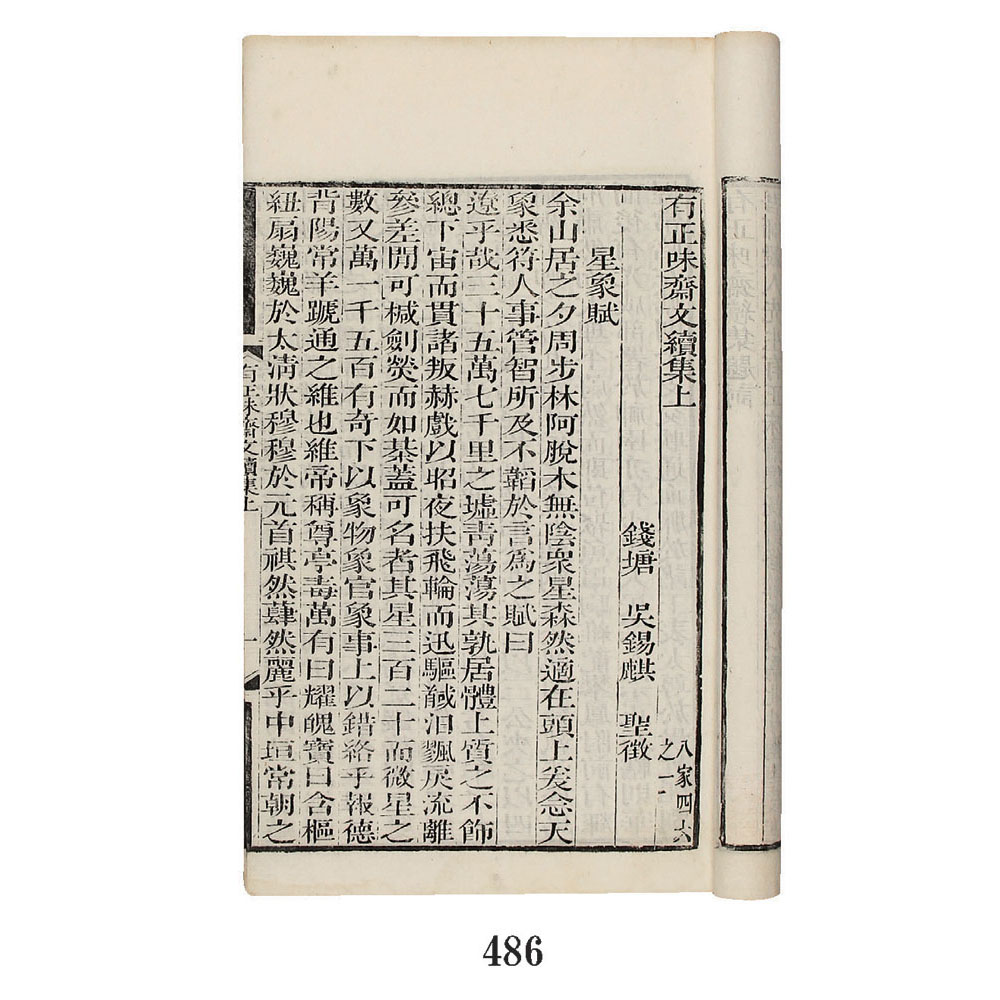 有正味齋文續集上
八家四六
之一
錢塘 吳錫麒 聖徵
星象賦
余山居之夕周步林阿脫木無陰衆星森然適在頭上爰念天
象悉符人事管智所及不韜於言爲之賦曰
遼乎哉三十五萬七千里之墟靑蕩蕩其孰居體上質之不飾
總下宙而貫諸叛赫戲以昭夜扶飛輪而迅驅馘汩飄戾流離
參差閒可椷劍熒而如棊蓋可名者其星三百二十而微星之
數又萬一千五百有奇下以象物象官象事上以錯絡乎報德
背陽常羊蹏通之維也維帝稱尊亭毒萬有曰耀魄寶曰含樞
紐扇巍巍於太淸狀穆穆於元首祺然䔑然麗乎中垣常朝之
有正味齋文續集上
一
486